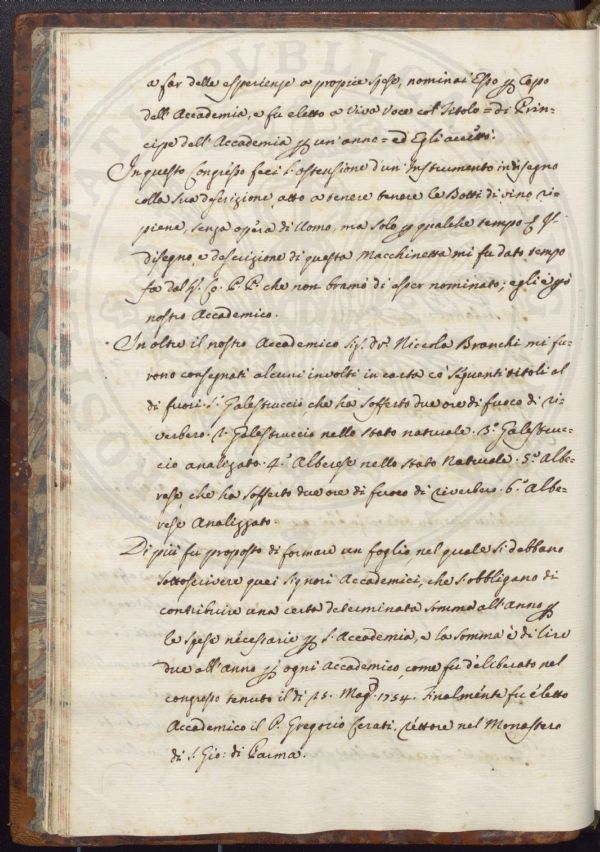 a far delle esperienze a proprie spese, nominai Esso p Capo
dell'Accademia, e fu eletto a Viva Voce col Titolo = di Prin-
cipe dell'Accademia p un'anno = ed Egli accettò.
In questo Congresso feci l'ostensione d'un Instrumento in disegno
colla sua descrizione, atto a tenere le Botti di vino ri-
piene, senza opera di Uomo, ma solo p qualche tempo
disegno, e descrizione di questa Macchinetta mi fu dato tempo
fa dal P. P. che non bramò di esser nominato; egli è però
nostro Accademico.
Inoltre il nostro Accademico Sig. Dr. Niccola Branchi mi fu-
rono consegnati alcuni involti in carta co' seguenti titoli al
di fuori. 1.º Galestruccio che ha sofferto due ore di fuoco di ri-
verbero. 2. Galestruccio nello stato naturale. 3.º Galestruc-
cio analizato. 4.º Alberese nello stato Naturale. 5.º Albe-
rese, che ha sofferto due ore di fuoco di riverbero. 6.º Albe-
rese Analizzato.
Di più fu proposto di formare un foglio, nel quale si debbano
sottoscrivere quei Signori Accademici, che s'obbligano di
contribuire una certa determinata somma all'anno p
le spese necessarie p l'Accademia, e la somma è di lire
due all'anno p ogni Accademico, come fu deliberato nel
congresso tenuto il dì 25. Mago. 1754. Finalmente fu eletto
Accademico il P. Gregorio Cerati, Lettore nel Monastero
di S. Gio: di Parma.